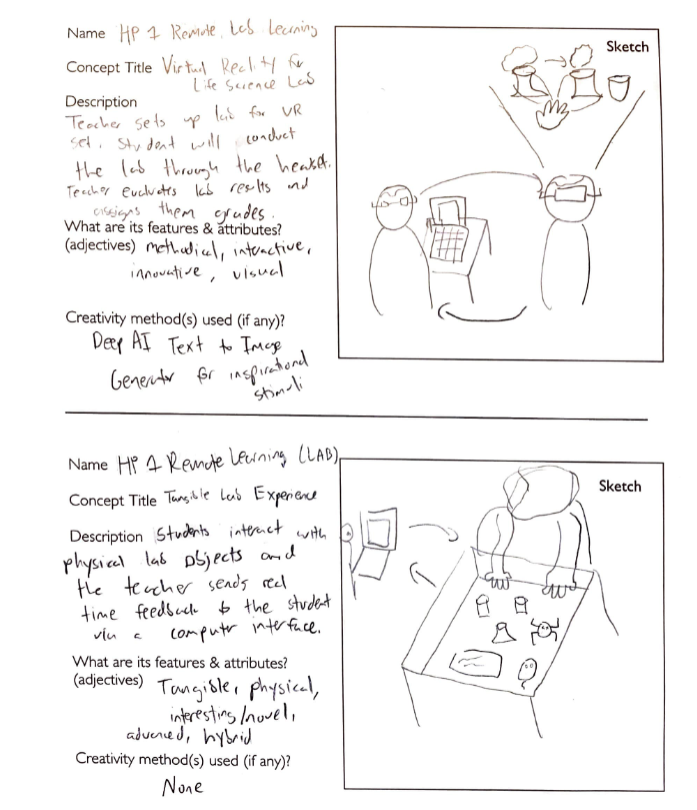 Name HP 1 Remote Lab Learning
Concept Title Virtual Reality for
Life Science Lab
Description
Teacher sets up lab for VR
set. Student will conduct
the lab through the headset.
Teacher evaluates lab results and
assigns them grades.
What are its features & attributes?
(adjectives) methodical, interactive,
innovative, visual
Creativity method(s) used (if any)?
Deep AI Text to Image
Generator for inspirational
stimuli
Sketch
Name HP 1 Remote Learning (LAB)
Concept Title Tangible Lab Experience
Description Students interact with
physical lab objects and
the teacher sends real
time feedback to the student
via a computer interface.
What are its features & attributes?
(adjectives) Tangible, physical,
interesting/novel,
advanced, hybrid
Creativity method(s) used (if any)?
None
Sketch